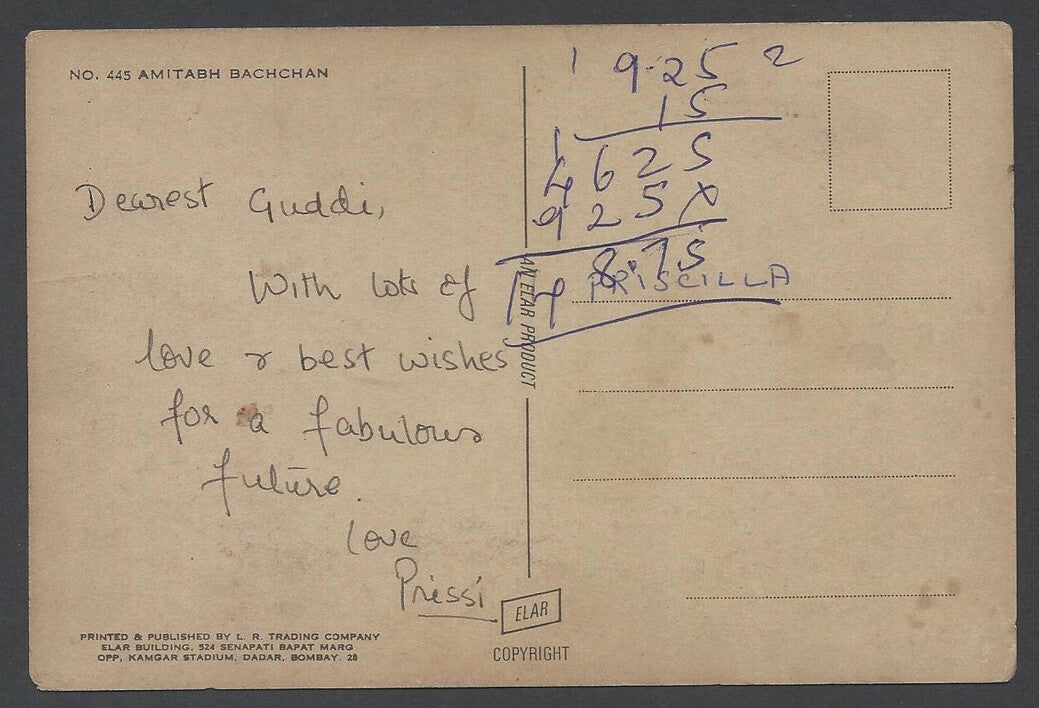 NO. 445 AMITABH BACHCHAN
Dearest Guddi,
With lots of
love & best wishes
for a fabulous
future.
love
Prissi
PRINTED & PUBLISHED BY L. R. TRADING COMPANY
ELAR BUILDING, 524 SENAPATI BAPAT MARG
OPP, KAMGAR STADIUM, DADAR, BOMBAY. 28
AN ELAR PRODUCT
ELAR
COPYRIGHT
1 9.25 2
15
1
4625
925X
148.75
PRISCILLA